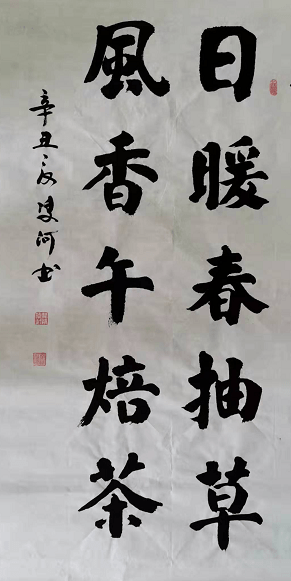 日暖春抽草
風香午焙茶
辛丑
河书